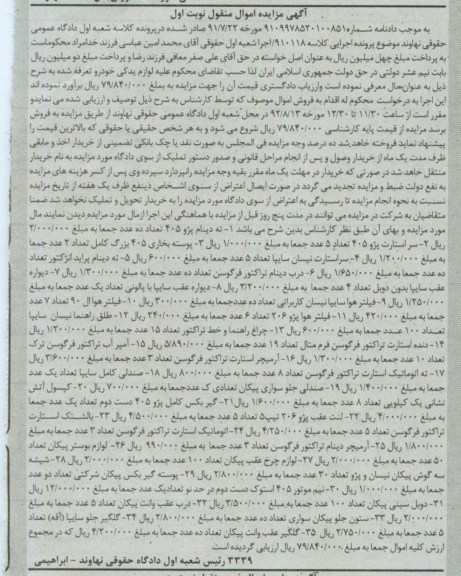 آگهی مزایده اموال منقول نوبت اول
به موجب دادنامه شماره ۹۱۰۹۹۷۸۵۲۰۱۰۰۸۵۱ مورخه ۹۱/۷/۲۲ صادر شده درپرونده کلاسه شعبه اول دادگاه عمومی
حقوقی نهاوند موضوع پرونده اجرایی کلاسه ۹۱۰۱۱۸ اجرا شعبه اول حقوقی آقای محمد امین عباسی فرزند خدامراد محکوم است
به پرداخت مبلغ چهل میلیون ریال به عنوان اصل خواسته در حق آقای علی صفر معافی فرزند رضا و پرداخت مبلغ دو میلیون ریال
بابت نیم عشر دولتی در حق دولت جمهوری اسلامی ایران لذا حسب تقاضای محکوم علیه لوازم یدکی خودرو تعرفه شده به شرح
ذیل به عنوان مال معرفی نموده است وارزیاب دادگستری قیمت آن را جهت مزایده به بملغ ۷۹/۸۴۰/۰۰۰ ریال برآورد نموده اند
این اجرا به درخواست محکوم له اقدام به فروش اموال موصوف که توسط کارشناس به شرح ذیل توصیف و ارزیابی شده می نماید و
مقرر است از ساعت ۱۱/۳۰ تا ۱۲/۳۰ مورخه ۹۲/۸/۱۳ در محل شعبه اول دادگاه عمومی حقوقی نهاوند از طریق مزایده به فروش
برسد مزایده از قیمت پایه کارشناسی ۷۹/۸۴۰/۰۰۰ ریال شروع می شود و به هر شخص حقیقی یا حقوقی که بالاترین قیمت را
پیشنهاد نماید فروخته خواهد شد ده درصد وجه مزایده فی المجلس به صورت نقد یا چک بانکی تضمینی از خریدار اخذ و مابقی
ظرف مدت یک ماه از خریدار وصول و پس از انجام مراحل قانونی و صدور دستور تملیک از سوی دادگاه مورد مزایده به نام خریدار
منتقل خاهد شد در صورتی که خریدار در مهلت یک ماه مقرر بقیه وجه مزایده رانپردازد سپرده وی پس از کسر هزینه های مزایده
به نفع دولت ضبط و مزایده تجدید می گردد در صورت ایصال اعتراض از سوی اشخاص ذینفع ظرف یک هفته از تاریخ مزایده
نسبت به نحوه انجام مزایده تا رسیدگی به اعتراض از سوی دادگاه مورد مزایده را به خریدار تحویل و تملیک نخواهد شد ضمنا
متقاضیان به شرکت در مزایده می توانند در مدت پنج روز قبل از مزایده با هماهنگی این اجرا ازمال مورد مزایده دیدن نمایند مال
مورد مزایده و بهای آن طبق نظر کارشناس بدین شرح می باشد ۱- ته دینام پژو ۴۰۵ تعداد ده عدد جمعا به مبلغ ۲/۰۰۰/۰۰۰
ریال ۲- سر استارت پژو ۴۰۵ تعداد ۵ عدد جمعا به مبلغ ۱/۰۰۰/۰۰۰ ریال ۳- پوسته بخاری ۴۰۵ بزرگ کامل تعداد ۲ عدد جمعا
به مبلغ ۱/۲۰۰/۰۰۰ ریال ۴- سراستارت نیسان سایپا تعداد ۵ عدد جمعا به مبلغ ۶۰۰/۰۰۰ ریال ۵- ته دینام پراید انژکتور تعداد
ده عدد جمعا به مبلغ ۱/۶۵۰/۰۰۰ ریال ۶- درب دینام تراکتور فرگوسن تعداد ده عدد جمعا به مبلغ ۱/۳۰۰/۰۰۰ ریال ۷- دیواره
عقب سایپا بدون دوبل تعداد ۴ عدد جمعا به مبلغ ۳/۲۰۰/۰۰۰ ریال ۸- دیواره عقب سایپا با پالونی تعداد یک عدد جمعا به مبلغ
۱/۲۵۰/۰۰۰ ریال ۹- فیلتر هوا سایپا نیسان کاربراتی تعداد ده عددجمعا به مبلغ ۳۰۰/۰۰۰ ریال ۱۰- فیلتر هوا ال ۹۰ تعداد ۷ عدد
جمعا به مبلغ ۴۲۰/۰۰۰ ریال ۱۱- فیلتر هوا پژو ۲۰۶ تعداد ۶ عدد جمعا به مبلغ ۲۴۰/۰۰۰ ریال ۱۲- طلق راهنما نیسان سایپا
تعداد ۱۰۰ عدد جمعا به مبلغ ۶۰۰/۰۰۰ ریال ۱۳- چراغ راهنما و خط تراکتور تعداد ۱۵ عدد جمعا به مبلغ ۱/۲۰۰/۰۰۰ ریال
۱۴- دنده استارت تراکتور فرگوسن فرم مثال تعداد ۱۹ عدد جمعا به مبلغ ۵/۸۹۰/۰۰۰ ریال ۱۵- آمپر آب تراکتور فرگوسن ترک
تعداد ۱۰ عدد جمعا به مبلغ ۱/۳۰۰/۰۰۰ ریال ۱۶- آرمیچر استارت تراکتور فرگوسن تعداد ۳ عدد جمعا به مبلغ ۳/۶۰۰/۰۰۰ ریال
۱۷- ته اتوماتیک استارت تراکتور فرگوسن تعداد ۸ عدد جمعا به مبلغ ۸۰۰/۰۰۰ ریال ۱۸- صندلی کامل سایپا تعداد یک عدد
جمعا به مبلغ ۱/۴۰۰/۰۰۰ ریال ۱۹- صندلی جلو سواری پیکان تعدادی ک عددجمعا به مبلغ ۷۰۰/۰۰۰ ریال ۲۰- کپسول آتش
نشانی یک کیلویی تعداد ۸ عدد جمعا به مبلغ ۱/۶۰۰/۰۰۰ ریال ۲۱- گیر بکس کامل پژو ۴۰۵ دست دوم تعداد یک عدد جمعا
به مبلغ ۴/۰۰۰/۰۰۰ ریال ۲۲- لنت عقب پژو ۲۰۶ تیپ۵ تعداد ۵ عدد جمعا به مبلغ ۴/۵۰۰/۰۰۰ ریال ۲۳- بالشتک استارت
تراکتور فرگوسن تعداد ۵ عدد جمعا به مبلغ ۴/۲۵۰/۰۰۰ ریال ۲۴- اتوماتیک استارت تراکتور فرگوسن تعداد ۳ عدد جمعا به مبلغ
۱/۸۰۰/۰۰۰ ریال ۲۵- آرمیچر دینام تراکتور فرگوسن تعداد ۳ عدد جمعا به مبلغ ۹۹۰/۰۰۰ ریال ۲۶- لوازم بوستر پیکان تعداد
۵۰ عدد جمعا به مبلغ ۲/۰۰۰/۰۰۰ ریال ۲۷- لوازم چرخ عقب پیکان تعداد ۱۰۰ عدد جمعا به مبلغ ۲/۰۰۰/۰۰۰ ریال ۲۸- شیشه
سه گوش پیکان نیسان و پژو تعداد ۳۰ عدد جمعا به مبلغ ۲/۸۰۰/۰۰۰ ریال ۲۹- پوسته گیر بکس پیکان شرکتی تعداد دو عدد
جمعا به مبلغ ۱/۰۰۰/۰۰۰ ریال ۳۰- نیم موتور ۴۰۵ استوک دست دوم در حد نو تعدادیک عدد جمعا به مبلغ ۱۲/۰۰۰/۰۰۰ ریال
۳۱- دوبل سینی پیکان تعداد ۱۰۰ عدد جمعا به مبلغ ۳/۵۰۰/۰۰۰ ریال ۳۲- درب عقب وانت پیکان تعداد ۵ عدد جمعا به مبلغ
۲/۰۰۰/۰۰۰ ریال ۳۳- ستون جلو پیکان سواری تعداد ده عدد جمعا به مبلغ ۲/۸۰۰/۰۰۰ ریال ۳۴- گلگیر جلو سایپا (آقه) تعداد
۵ عدد جمعا به مبلغ ۲/۷۵۰/۰۰۰ ریال ۳۵- گلگیر عقب وانت پیکان تعداد ده عدد جمعا به مبلغ ۴/۲۰۰/۰۰۰ ریال که در مجموع
ارزش کلیه اموال جمعا به مبلغ ۷۹/۸۴۰/۰۰۰ ریال ارزیابی گردیده است.
۳۳۳۹ رئیس شعبه اول دادگاه حقوقی نهاوند - ابراهیمی